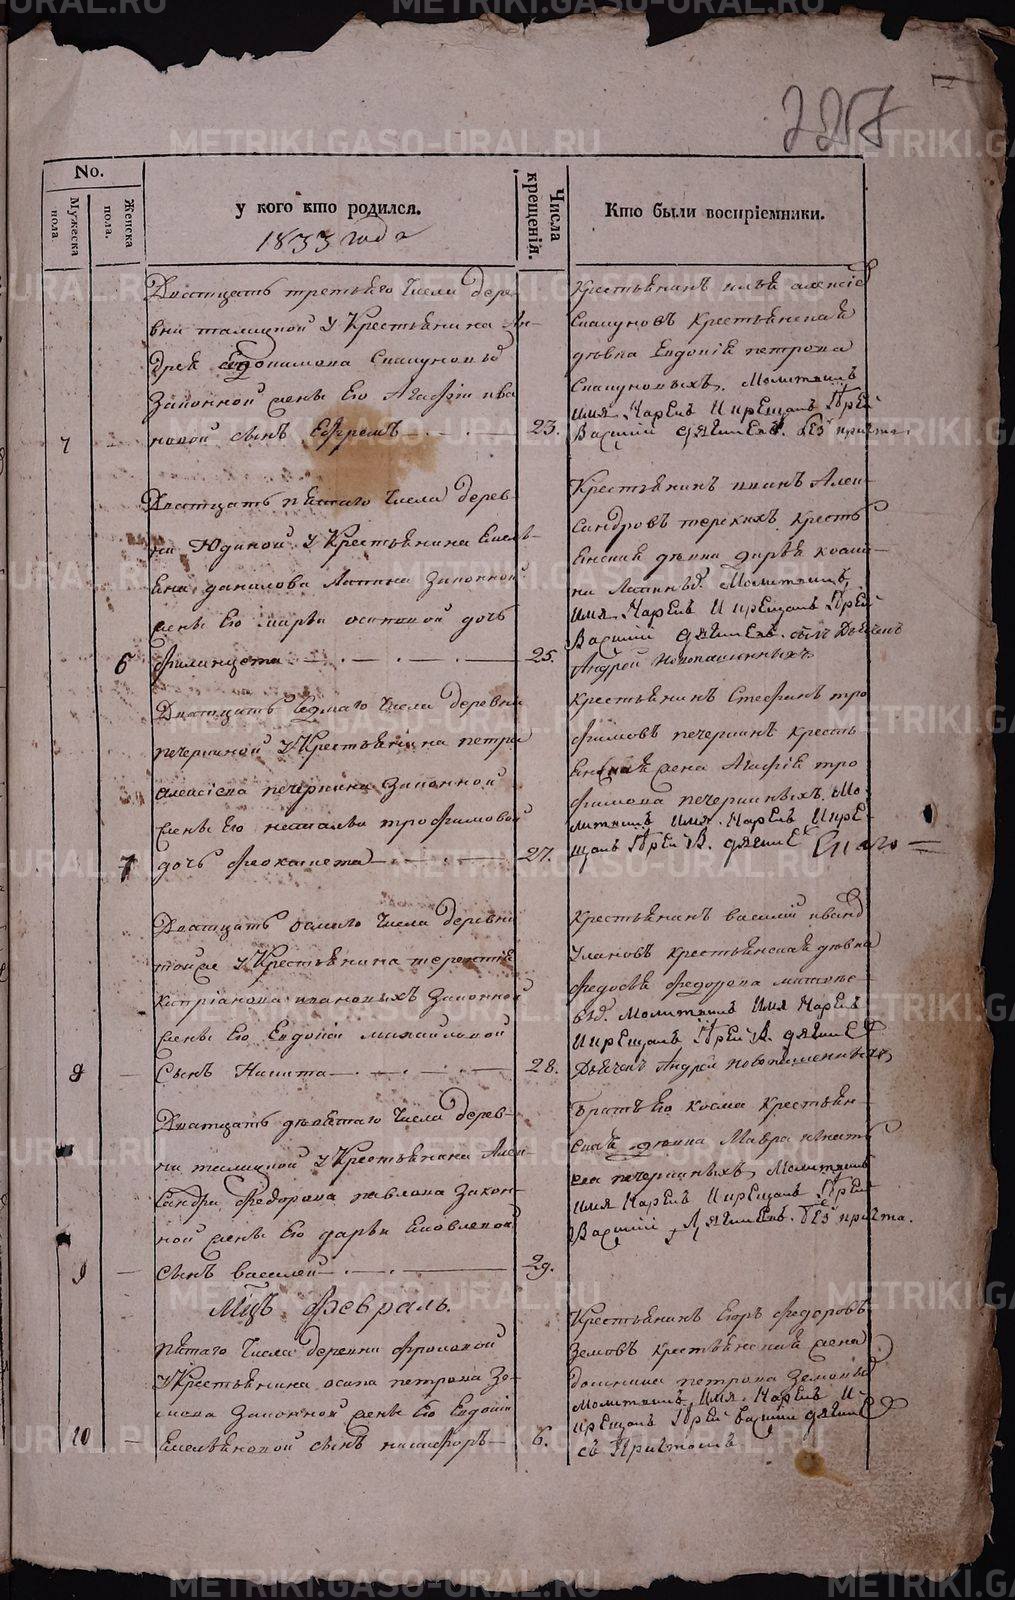 225
No.
Мужеска пола
Женска пола.
у кого кто родился.
1833 года
Числа крещенія.
Кто были воспріемники.
Дватцать третьяго Числа дере-
вни талицкой У Крестьянина Ан-
дрея
Законной жены Его Агафіи ива
7
новой сынъ Ефремъ
23.
Крестьянинъ илья алексіевъ
Крестьянская
дѣвка Евдокія петрова
Молитвилъ
имя Нарекъ И крещалъ Іерей
Василій без причта.
Дватцать пятаго Числа дерев-
ни Юдиной У Крестьянина Емель-
яна данилова Лапина Законной
жены Его марьи осиповой дочь
6
филицата
25.
Крестьянинъ иванъ Алек-
сандровъ терскихъ кресть
янская дѣвка дарья косми-
на Молитвилъ
имя Нарекъ И крещалъ Іерей
Василій съ Дьячкомъ
Андрей Новопашенныхъ
Дватцать седмаго Числа деревни
печеркиной У Крестьянина петра
алексіева печеркина Законной
жены Его натальи трофимовой
7
дочь феоктиста
27.
Крестьянинъ Стефанъ тро
фимовъ печеркинъ кресть
янская жена Агафія тро
фимова печеркиныхъ. Мо-
литвилъ имя Нарекъ И кре-
щалъ Іерей В.
Дватцать осмаго Числа деревни
У Крестьянина терентія
кипріанова ивановыхъ Законной
жены Его Евдокіи михайловой
8
Сынъ Никита
28.
Крестьянинъ василій иванъ
Улановъ крестьянская дѣвка
федосья федорова
Молитвилъ Имя Нарекъ
И крещалъ Іерей В.
Дьячекъ Андрей новопашенныхъ
Дватцать девятаго Числа дерев-
ни талицкой У Крестьянина Алек
сандра федорова павлова Закон-
ной жены Его дарьи Ековлевой
9
сынъ василей
29.
Братъ Его косма крестьян-
ская дѣвка Мавра игнать
ева печеркиныхъ Молитвилъ
имя Нарекъ И крещалъ Іерей
Василій без причта.
Мцъ февраль.
пятаго Числа деревни фроловой
У Крестьянина осипа петрова Зе-
мова Законной жены Его Евдокіи
10
Емельяновой сынъ никифоръ
6.
Крестьянинъ Егоръ федоровъ
Земовъ крестьянская жена
домника петрова Земовы
Молитвилъ Имя Нарекъ И
крещалъ Іерей василій
съ Причтомъ
METRIKI.GASO-URAL.RU